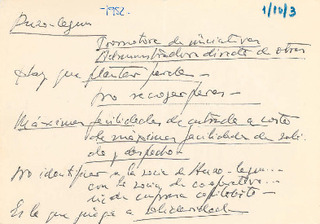 -1952- 1/10/3
Auzo-lagun
Promotora de iniciativas
Administradora directa de obras
Hay que plantar perales -
No recoger peras -
Máximas facilidades de entrada a costa
de máximas facilidades de sali
da y despecho -
No identificar a la socia de Auzo-lagun...
con la socia de cooperativa...
ni de empresa capitalista -
Es la que juega a solidaridad